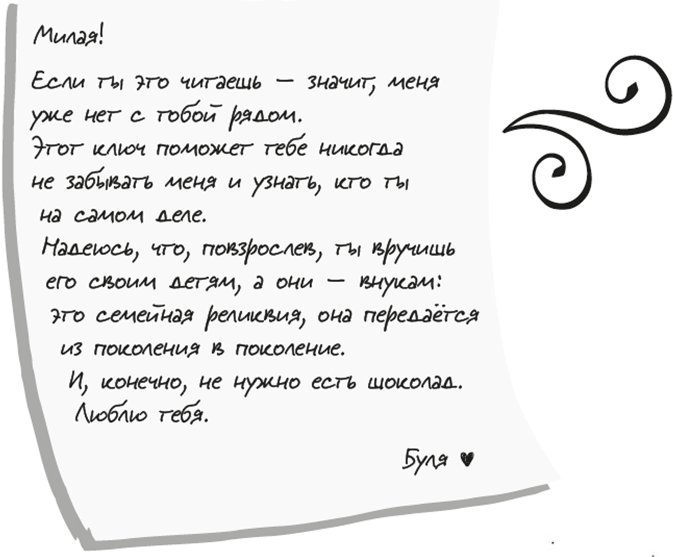 Милая!
Если ты это читаешь — значит, меня
уже нет с тобой рядом.
Этот ключ поможет тебе никогда
не забывать меня и узнать, кто ты
на самом деле.
Надеюсь, что, повзрослев, ты вручишь
его своим детям, а они — внукам:
это семейная реликвия, она передаётся
из поколения в поколение.
И, конечно, не нужно есть шоколад.
Люблю тебя.
Буля ♥